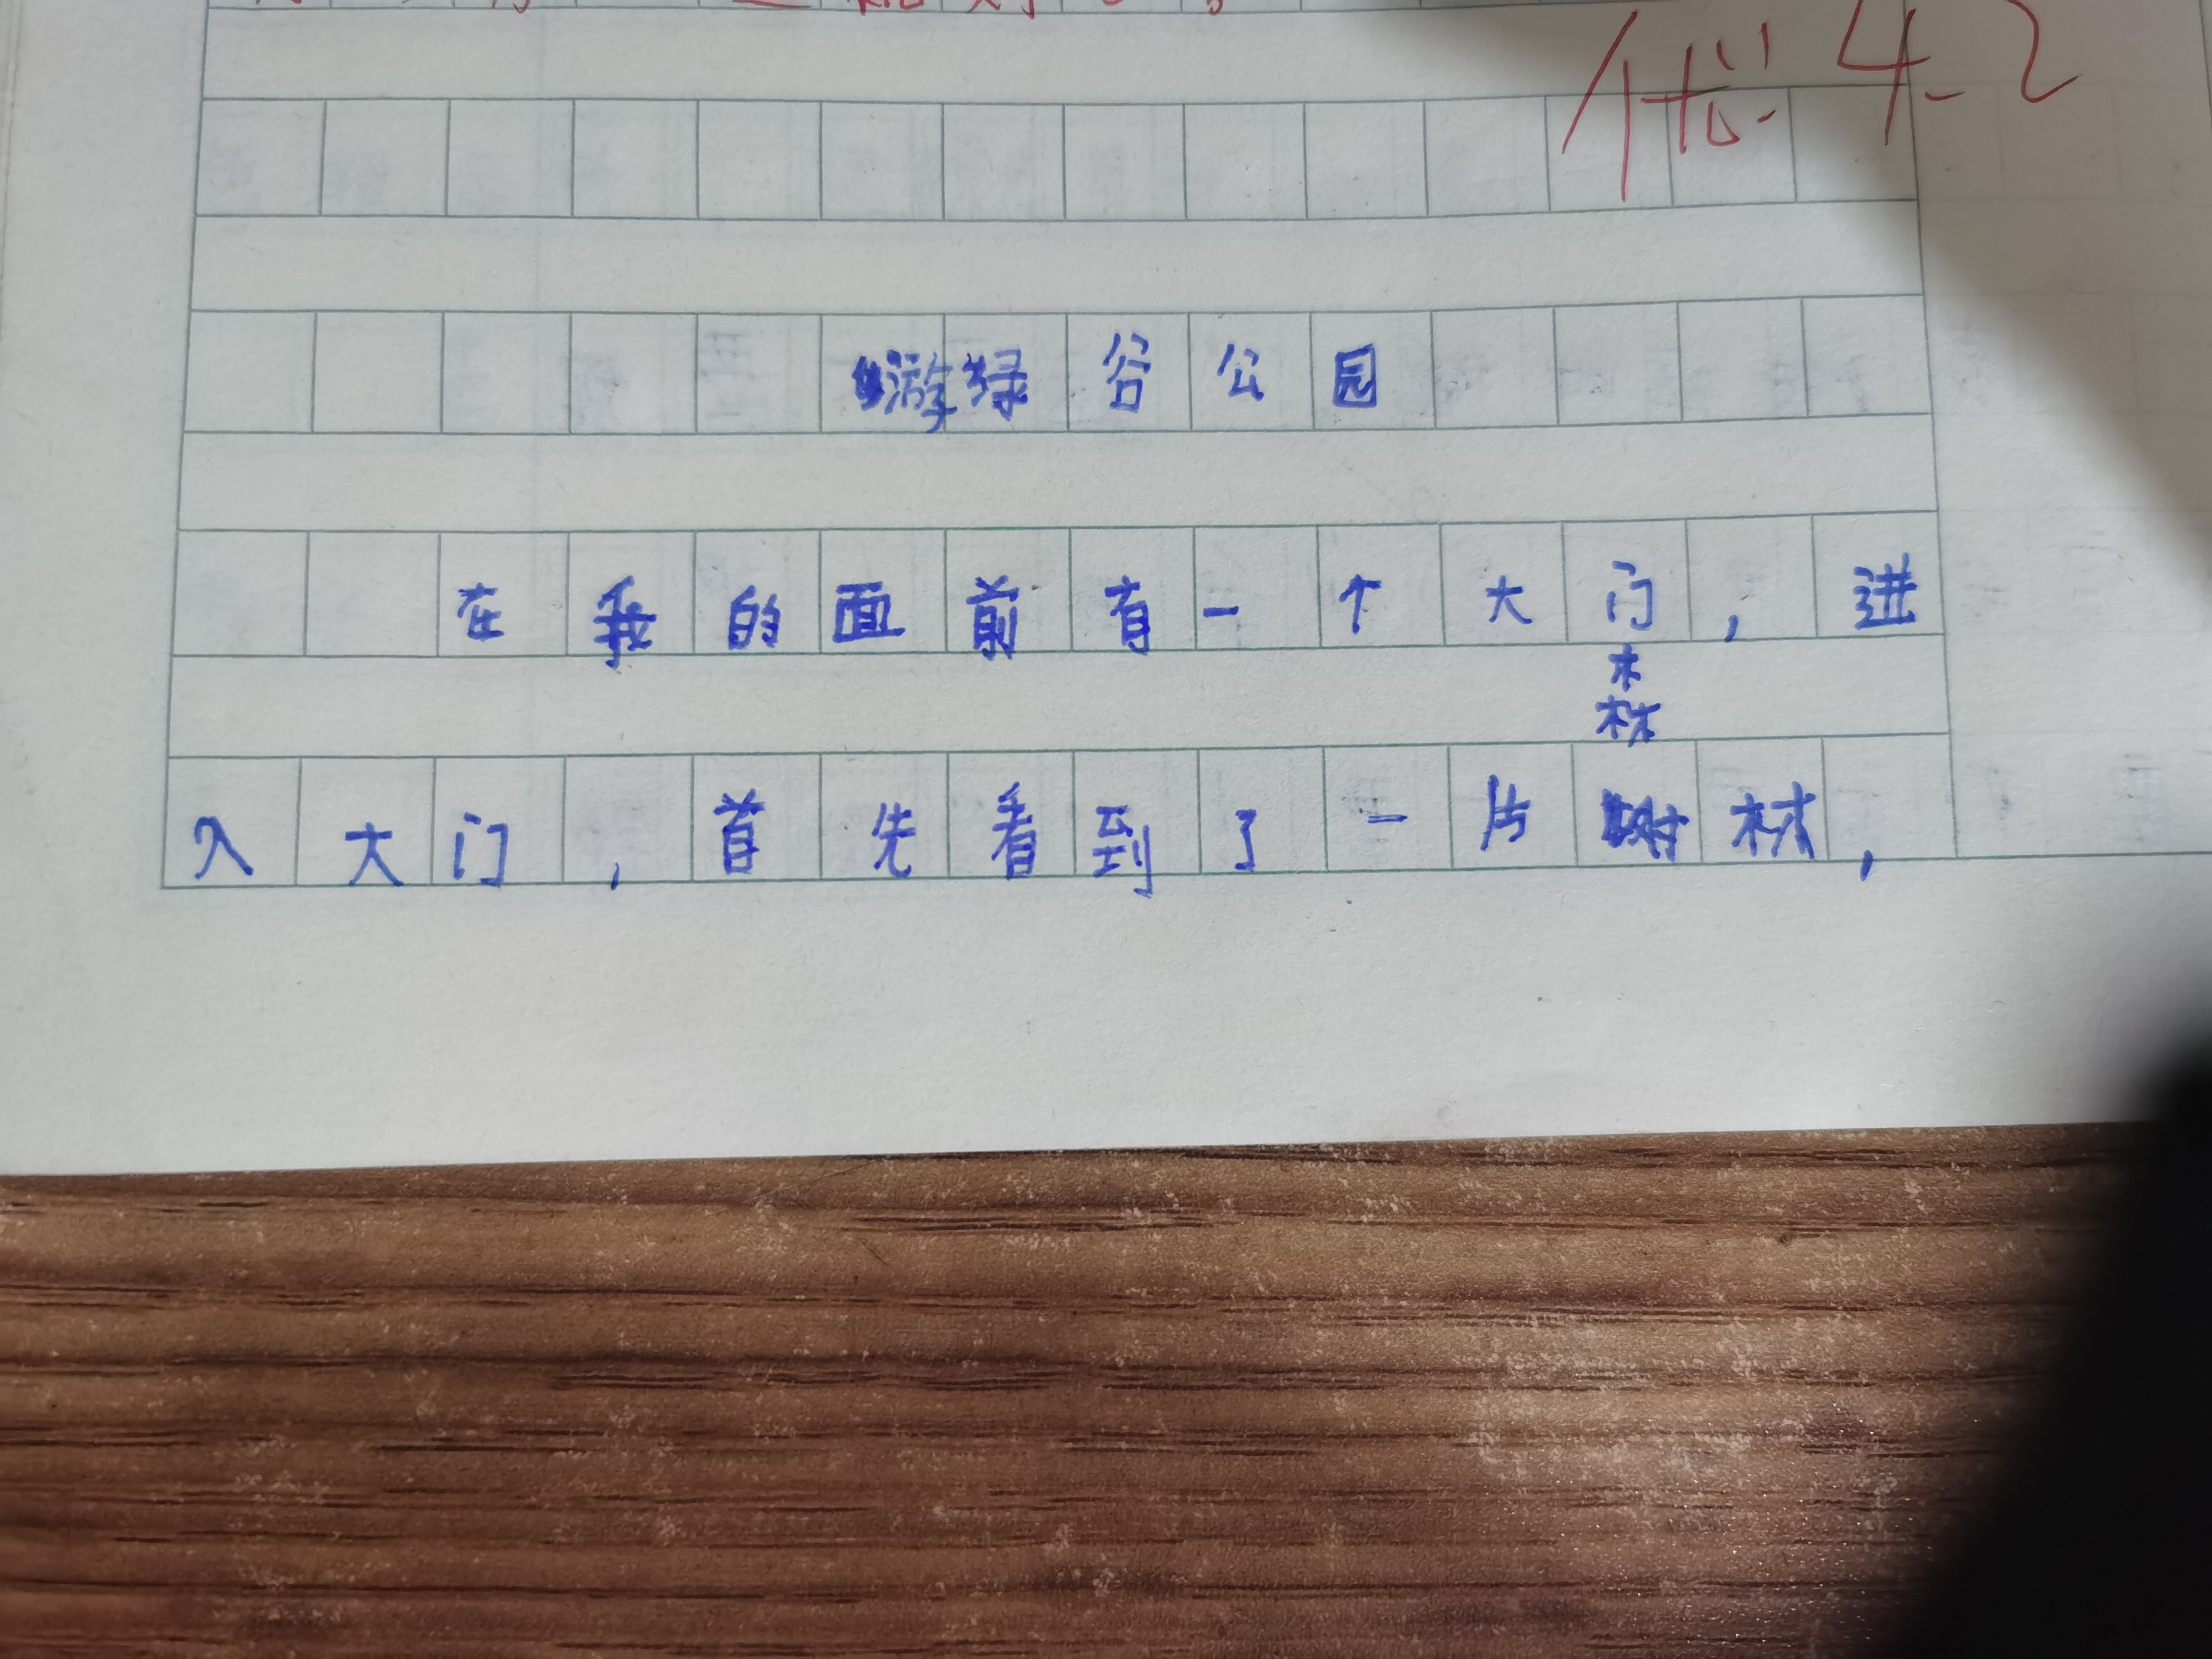 优 4.2
游绿谷公园
在我的面前有一个大门，进
森
入大门，首先看到了一片树林，